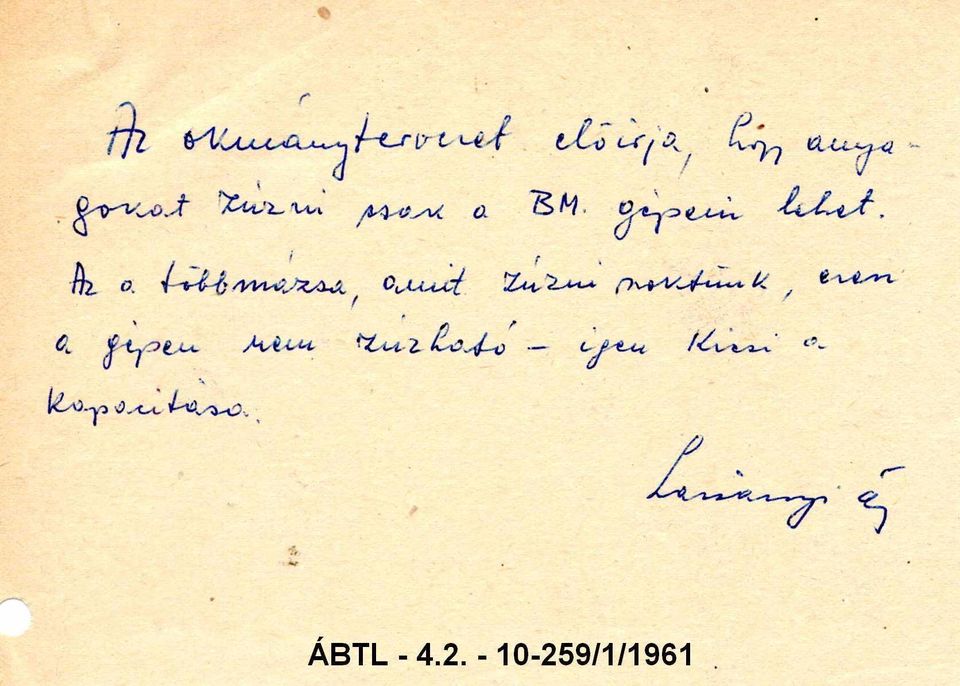 Az okmánytervezet előírja, hogy anya-
gokat zúzni csak a BM. gépein lehet.
Az a többmázsa, amit zúzni szoktunk, ezen
a gépen nem zúzható – igen kicsi a
kapacitása.
ÁBTL - 4.2. - 10-259/1/1961